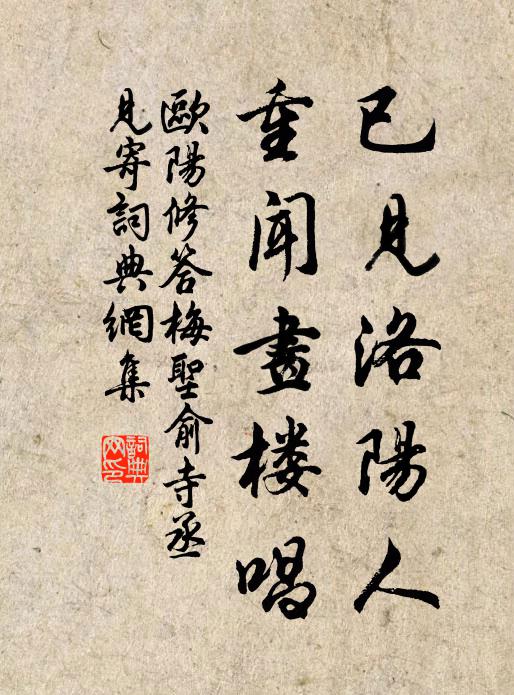 已見洛陽人
重聞畫楼唱
歐陽修答梅聖俞寺丞
見寄詞典網集
詞典
网印